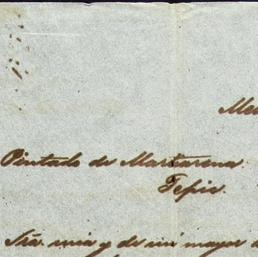 Me
Pintado de Martarena
Tepic.
Sra. mia y de mi mayor a